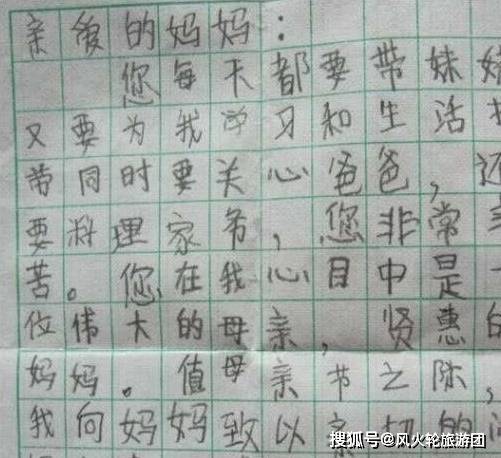 亲後的妈妈：
您每天都要带妹
又要为我学习和生活
带同时要关心爸爸，还
要料理家务，您非常
苦。您在我心目中是一
位伟大的母亲，贤惠的
妈妈。值母亲节之际，
我向妈妈致以亲切的
搜狐号@风火轮旅游团